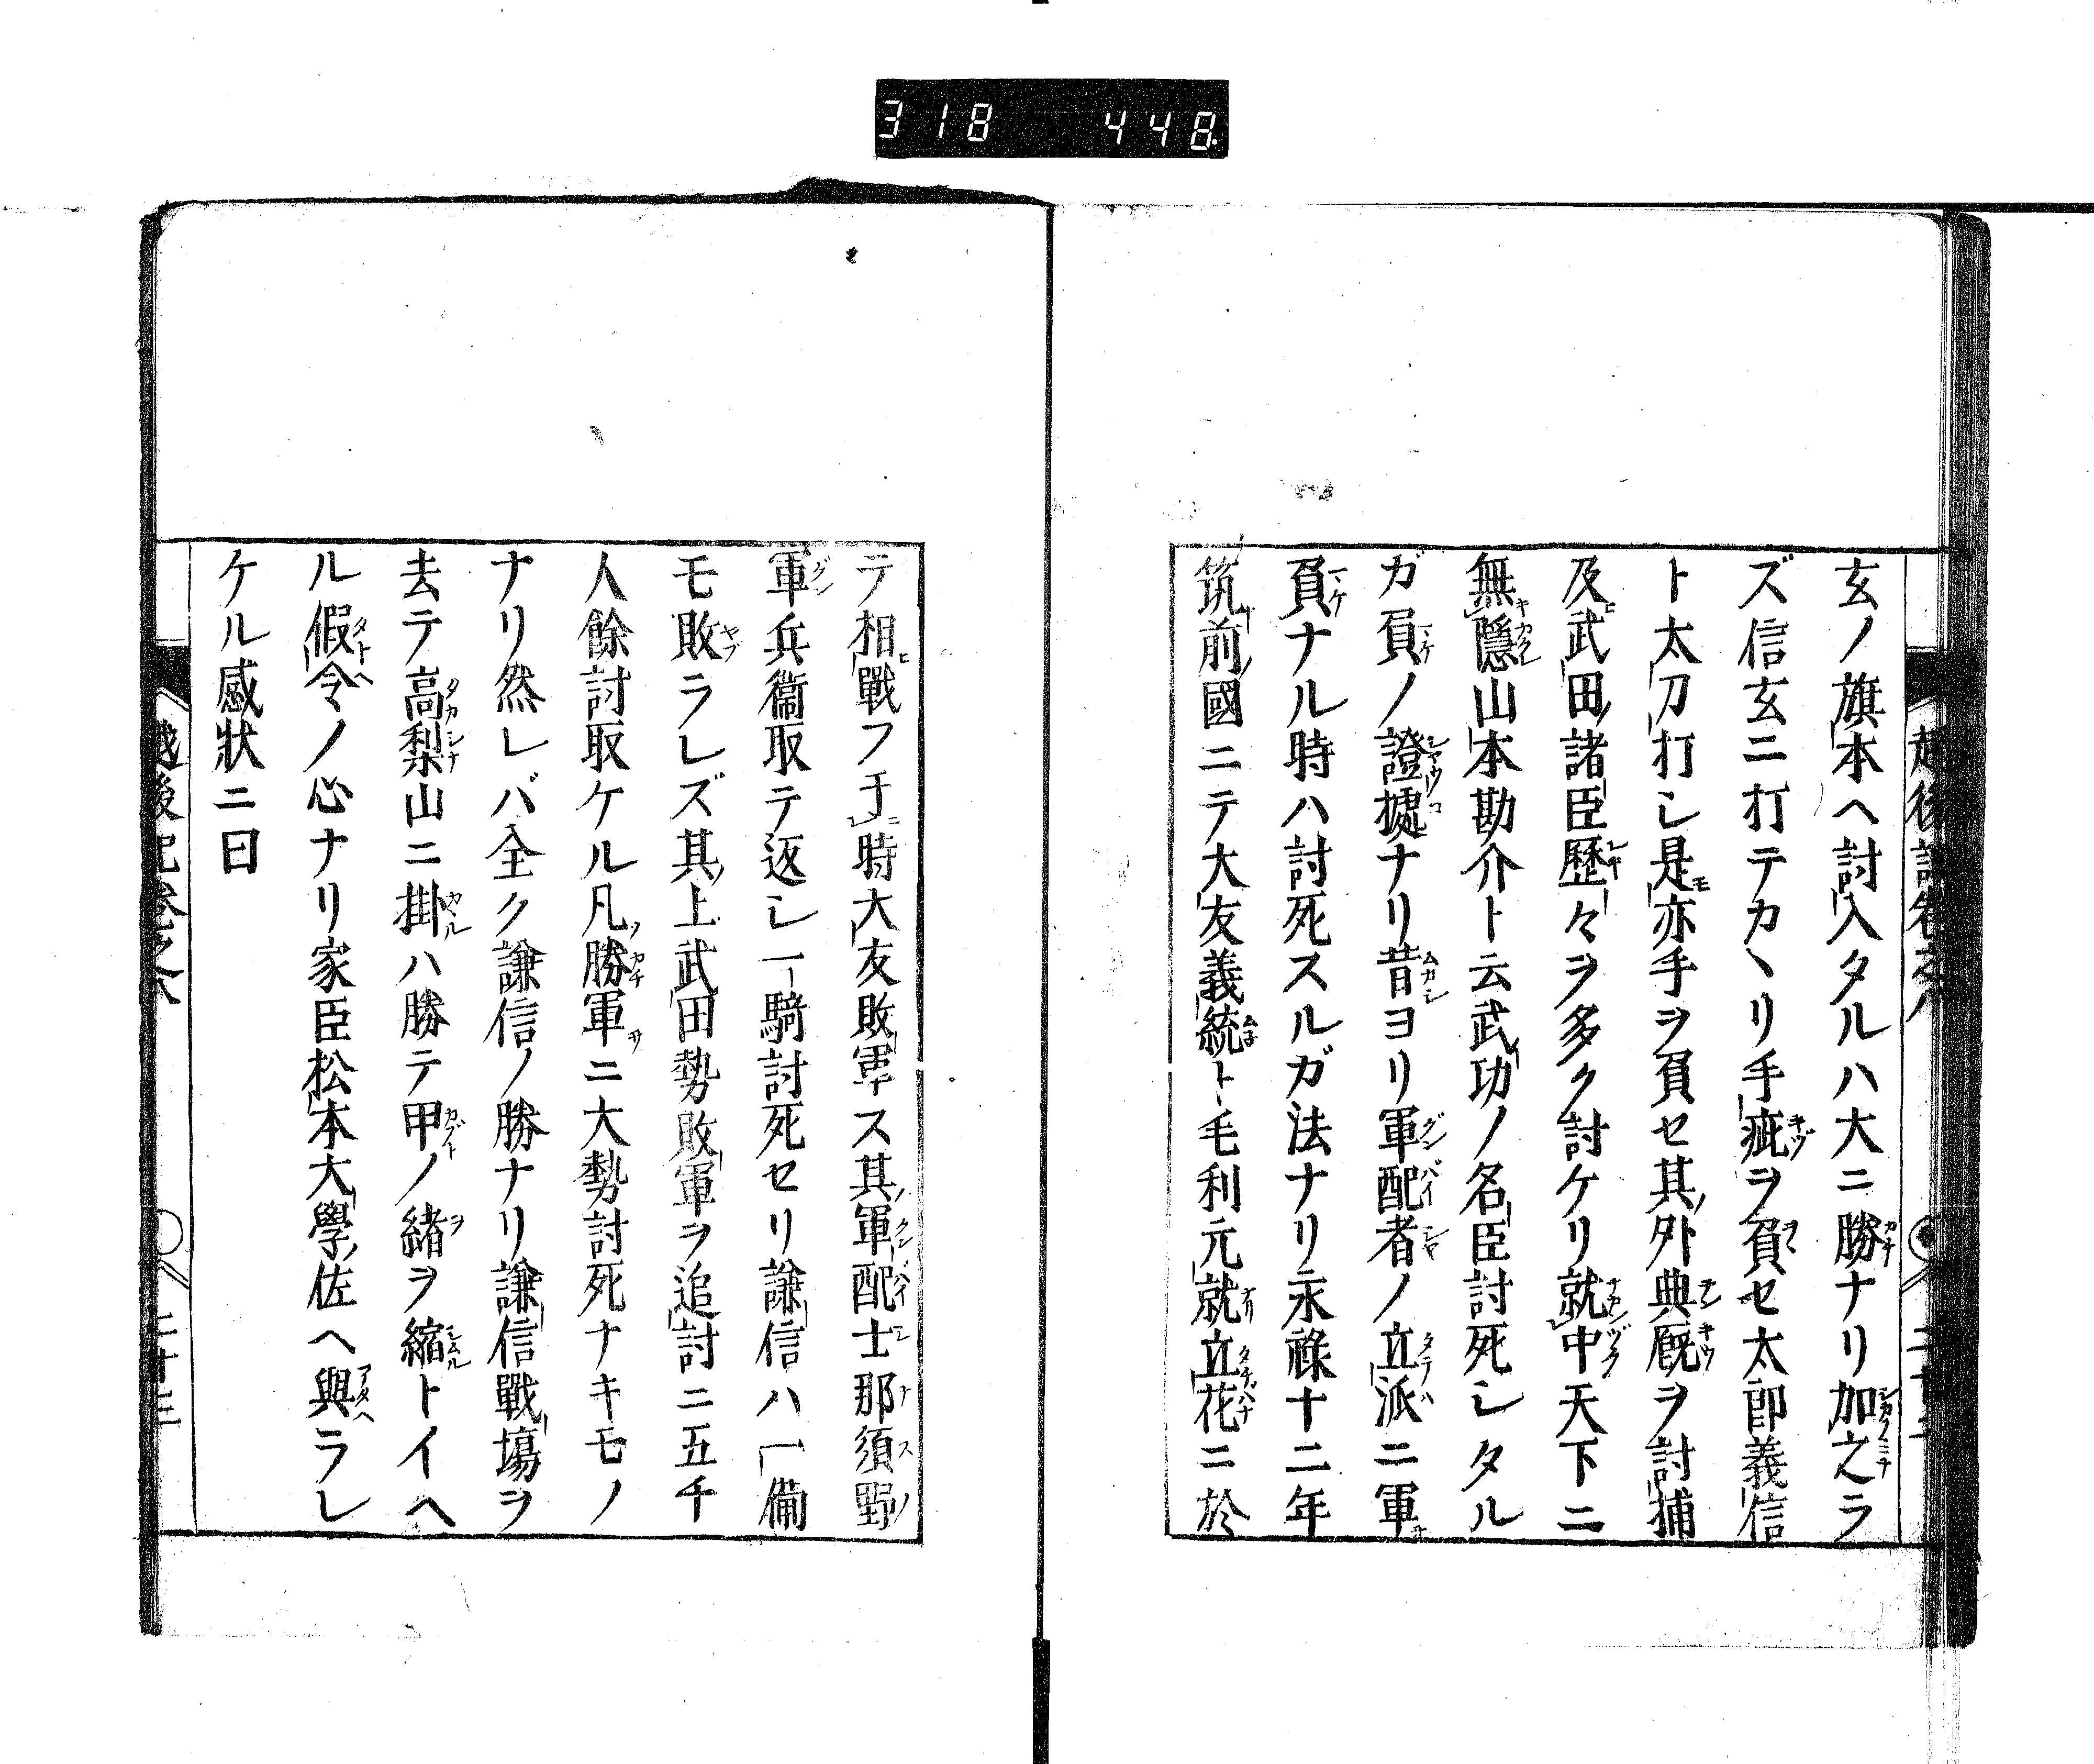 318 448
玄ノ旗本ヘ討入タルハ大ニ勝ナリ加之ラ
ズ信玄ニ打テカヽリ手疵ヲ負セ太郎義信
ト太刀打シ是亦手ヲ負セ其外典厩ヲ討捕
及武田諸臣歷々ヲ多ク討ケリ就中天下ニ
無隱山本勘介ト云武功ノ名臣討死シタル
ガ負ノ證據ナリ昔ヨリ軍配者ノ立派ニ軍
負ナル時ハ討死スルガ法ナリ永祿十二年
筑前國ニテ大友義統ト毛利元就立花ニ於
テ相戰フ于時大友敗軍ス其軍配士那須野
軍兵衞取テ返シ一騎討死セリ謙信ハ一備
モ敗ラレズ其上武田勢敗軍ヲ追討ニ五千
人餘討取ケル凡勝軍ニ大勢討死ナキモノ
ナリ然レバ全ク謙信ノ勝ナリ謙信戰塲ヲ
去テ高梨山ニ掛ハ勝テ甲ノ緒ヲ縮トイヘ
ル假令ノ心ナリ家臣松本大學佐ヘ與ラレ
ケル感狀ニ曰
越後記卷之八
二十三